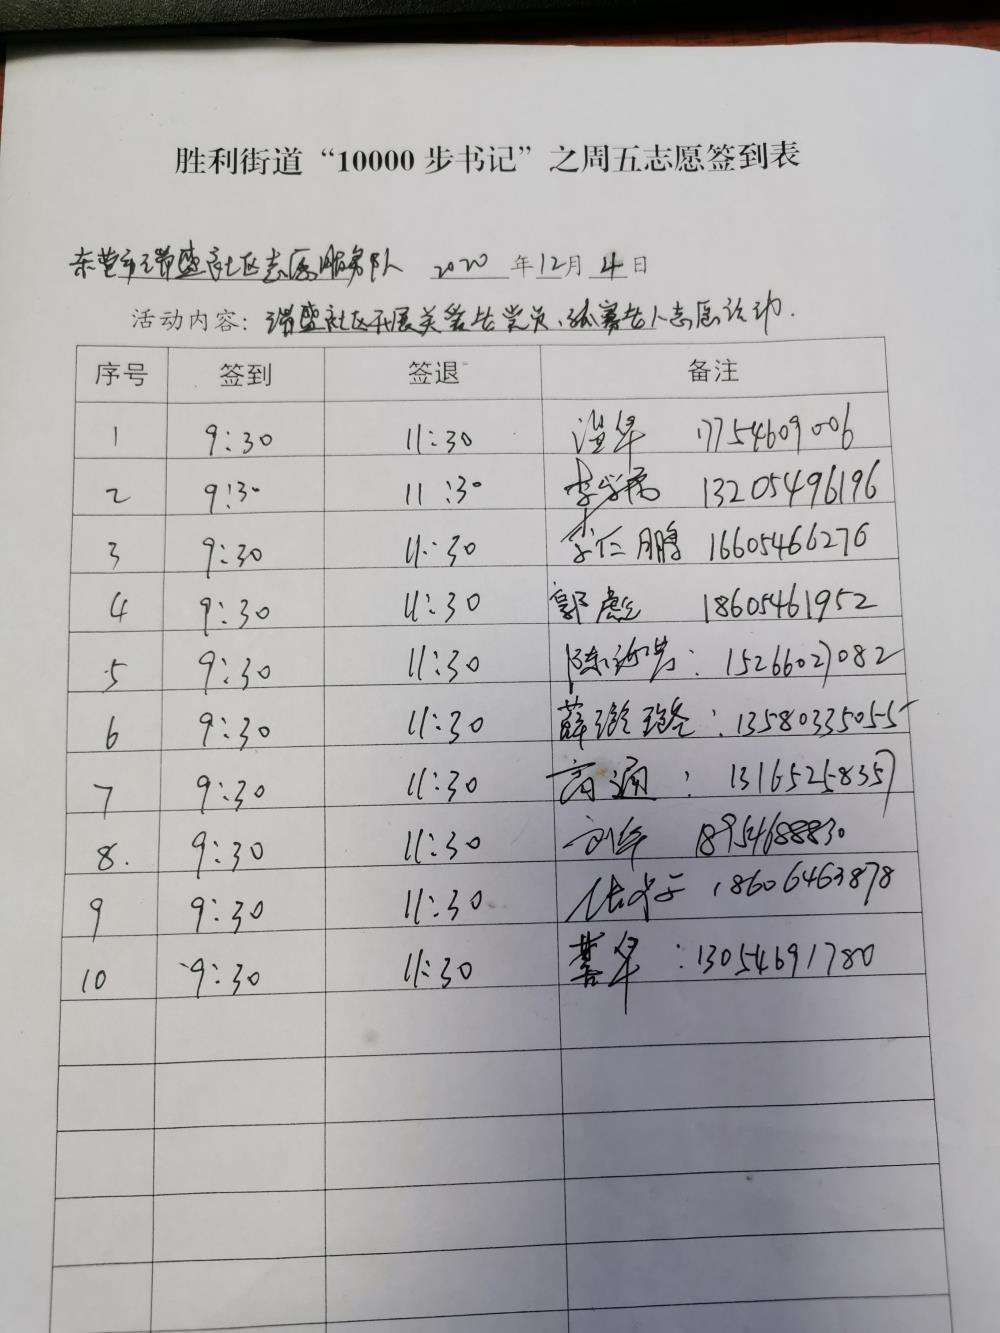 胜利街道“10000步书记”之周五志愿签到表
东营市瑞盛社区志愿服务队 2020 年 12 月 4 日
活动内容：瑞盛社区开展关爱老党员、孤寡老人志愿活动.
序号 签到 签退 备注
1 9:30 11:30 17754609006
2 9:30 11:30 13205496196
3 9:30 11:30 李仁鹏 16605466276
4 9:30 11:30 郭彪 18605461952
5 9:30 11:30 15266027082
6 9:30 11:30 薛 : 13580335055
7 9:30 11:30 高通 : 13165258357
8. 9:30 11:30 刘华 18954688830
9 9:30 11:30 18606463878
10 9:30 11:30 : 13054691780